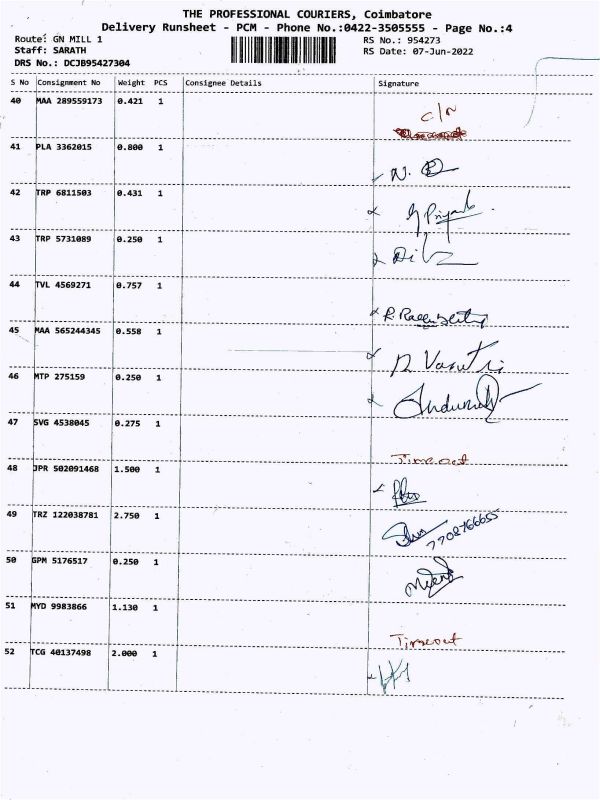 THE PROFESSIONAL COURIERS, Coimbatore
Delivery Runsheet - PCM - Phone No.:0422-3505555 - Page No.:4
Route: GN MILL 1 RS No.: 954273
Staff: SARATH RS Date: 07-Jun-2022
DRS No.: DCJB95427304
S No Consignment No Weight PCS Consignee Details Signature
40 MAA 289559173 0.421 1
C/N
41 PLA 3362015 0.800 1
N.
42 TRP 6811503 0.431 1
43 TRP 5731089 0.250 1
44 TVL 4569271 0.757 1
45 MAA 565244345 0.558 1
46 MTP 275159 0.250 1
47 SVG 4538045 0.275 1
Time out
48 JPR 502091468 1.500 1
49 TRZ 122038781 2.750 1
7708766655
50 GPM 5176517 0.250 1
51 MYD 9983866 1.130 1
Timeout
52 TCG 40137498 2.000 1